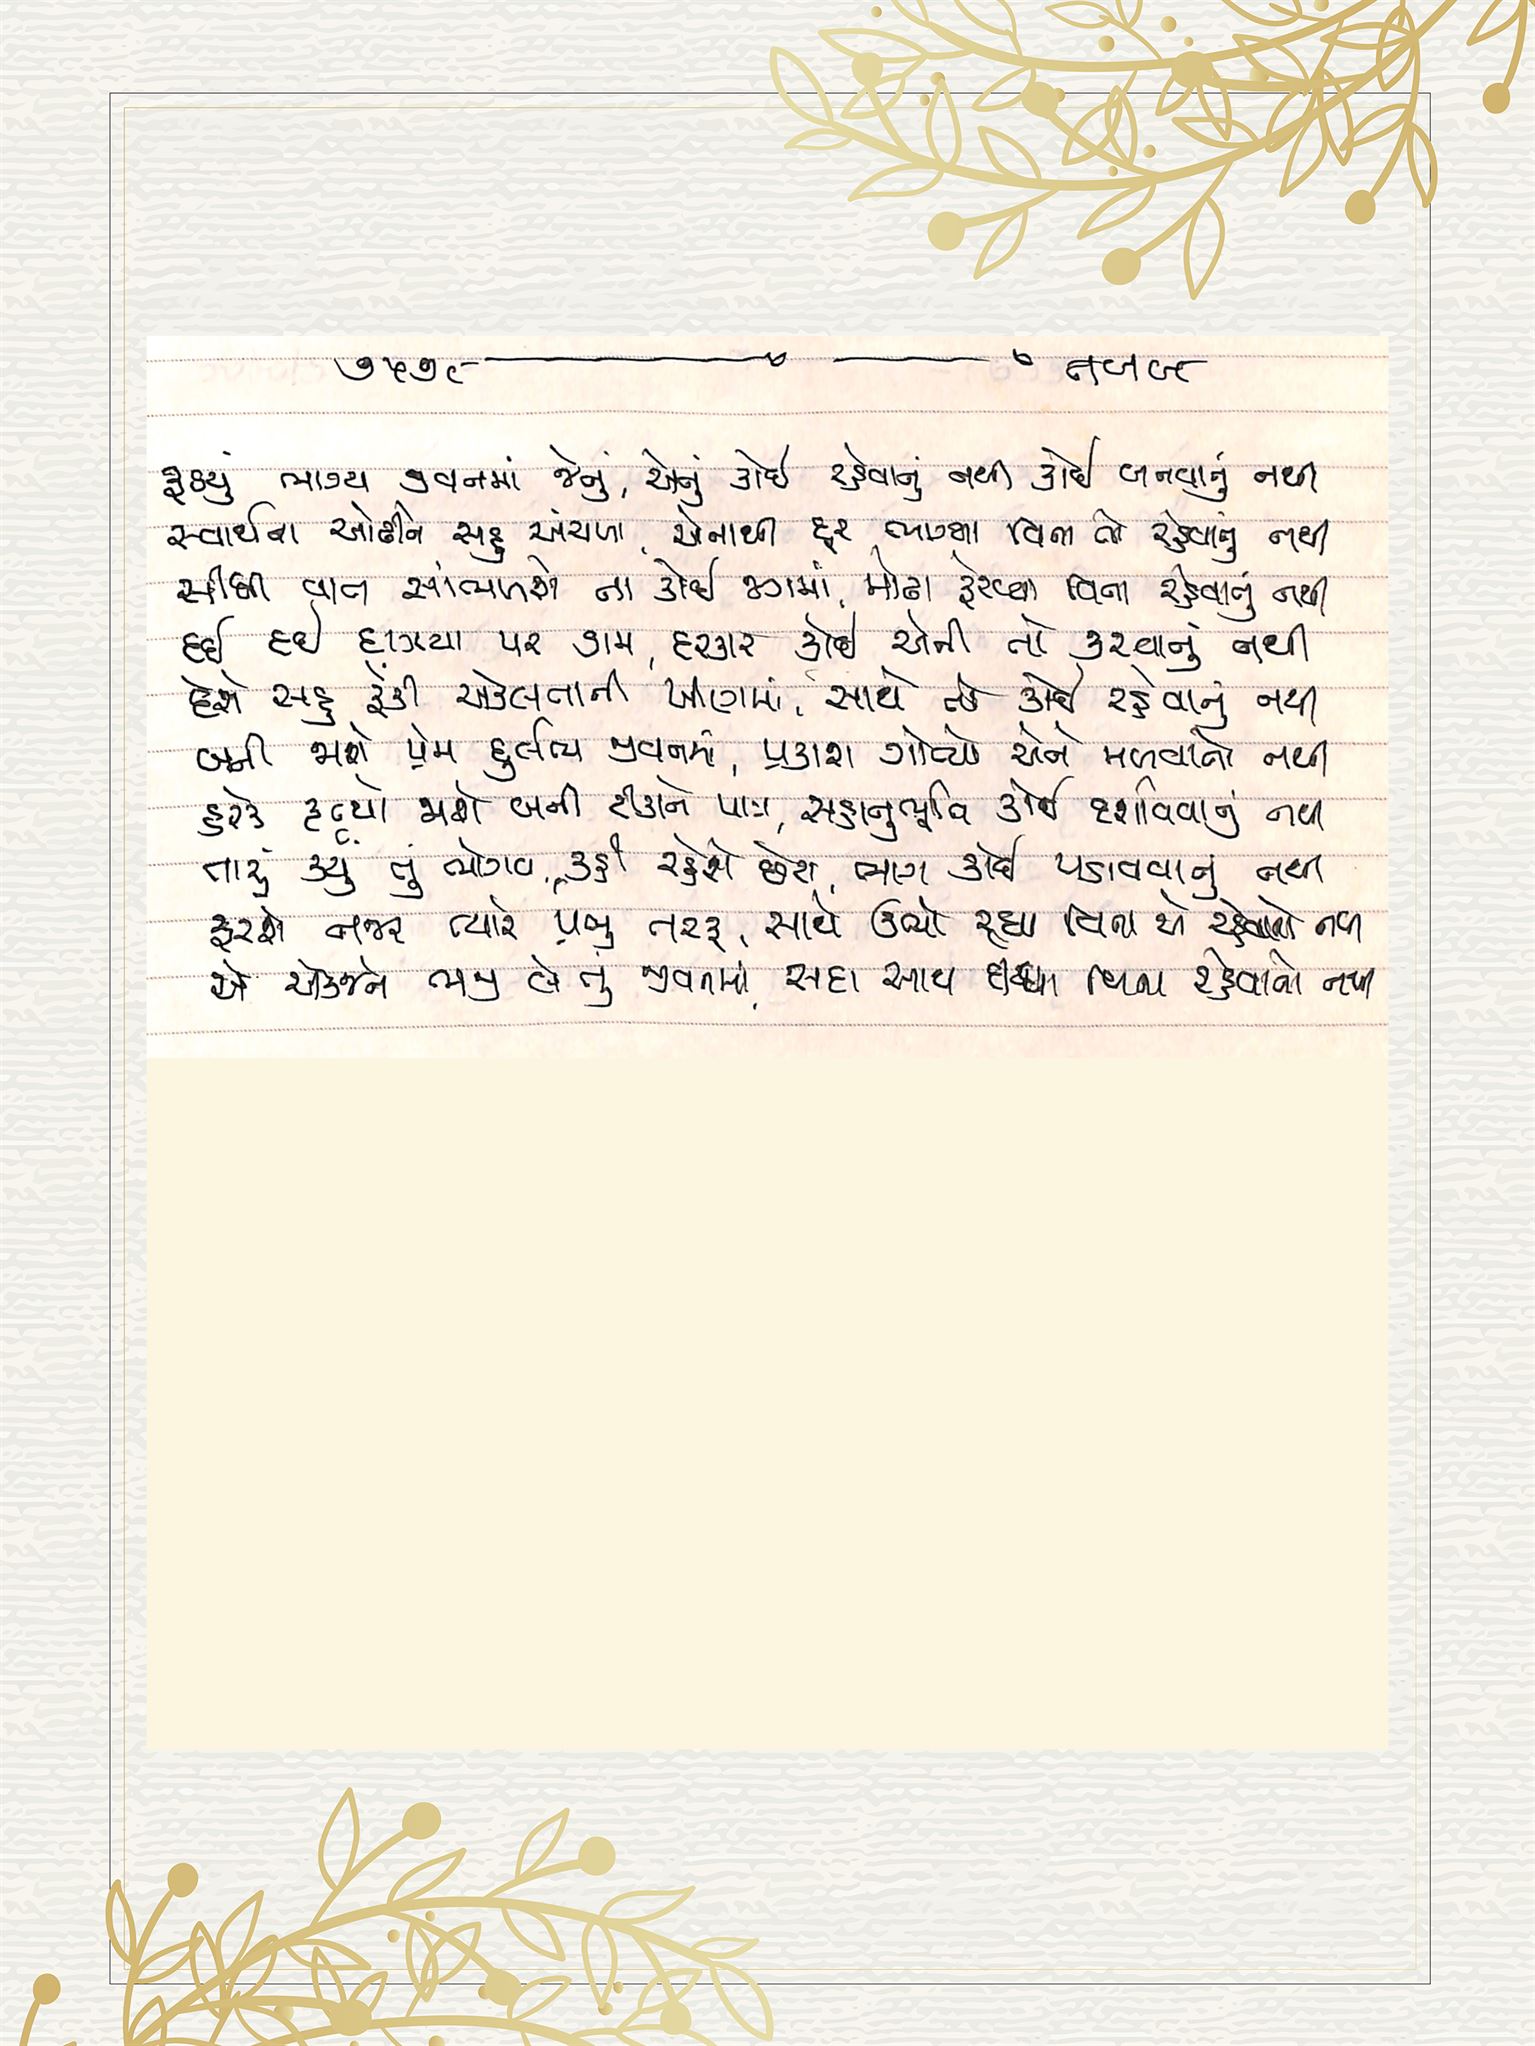 ૭૫૭૯
રૂઠયું ભાગ્ય જીવનમાં જેનું, એનું કોઈ રહેવાનું નથી કોઈ બનવાનું નથી
સ્વાર્થના ઓઢીને સહુ અંચળા, એનાથી દૂર ભાગ્યા વિના તો રહેવાનું નથી
સીધી વાત સાંભળશે ના કોઈ જગમાં, મોઢા ફેરવ્યા વિના રહેવાનું નથી
દઈ દઈ દાઝ્યા પર ડામ, દરકાર કોઈ એની તો કરવાનું નથી
દેશે સહુ ફેંકી એકલતાની ખીણમાં, સાથે તો કોઈ રહેવાનું નથી
બની જાશે પ્રેમ દુર્લભ જીવનમાં, પ્રકાશ ગોત્યો એને મળવાનો નથી
હરેક કૃત્યો જાશે બની ટીકાને પાત્ર, સહાનુભૂતિ કોઈ દર્શાવવાનું નથી
તારું કર્યું તું ભોગવ, કહી રહેશે છેટા, ભાગ કોઈ પડાવવાનું નથી
ફરશે નજર ત્યારે પ્રભુ તરફ, સાથે ઉભો રહ્યા વિના એ રહેવાનો નથી
એ એકજને ભજી લે તું જીવનમાં, સદા સાથ દીધા વિના રહેવાનો નથી